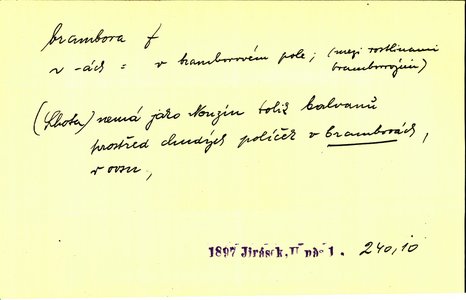 brambora f
v -ách = v bramborovém pole; (mezi rostlinami
bramborovými)
(Lhota) nemá jako Nouzín tolik balvanů
prostřed chudých políček v bramborách,
v ovsu,
1897 Jirásek, U nás 1. 240,10